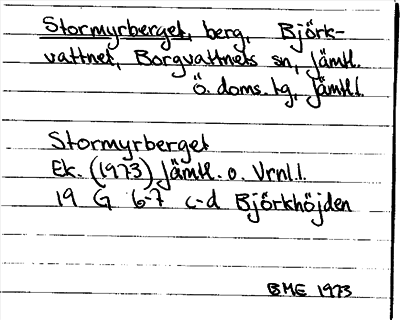 Stormyrberget, berg, Björk-
vattnet, Borgvattnets sn, Jämtl.
Ö. doms. tg, Jämtl.l.
Stormyrberget
Ek. (1973) Jämtl. o. Vrnl.l.
19 G 6-7 c-d Björkhöjden
BME 1973